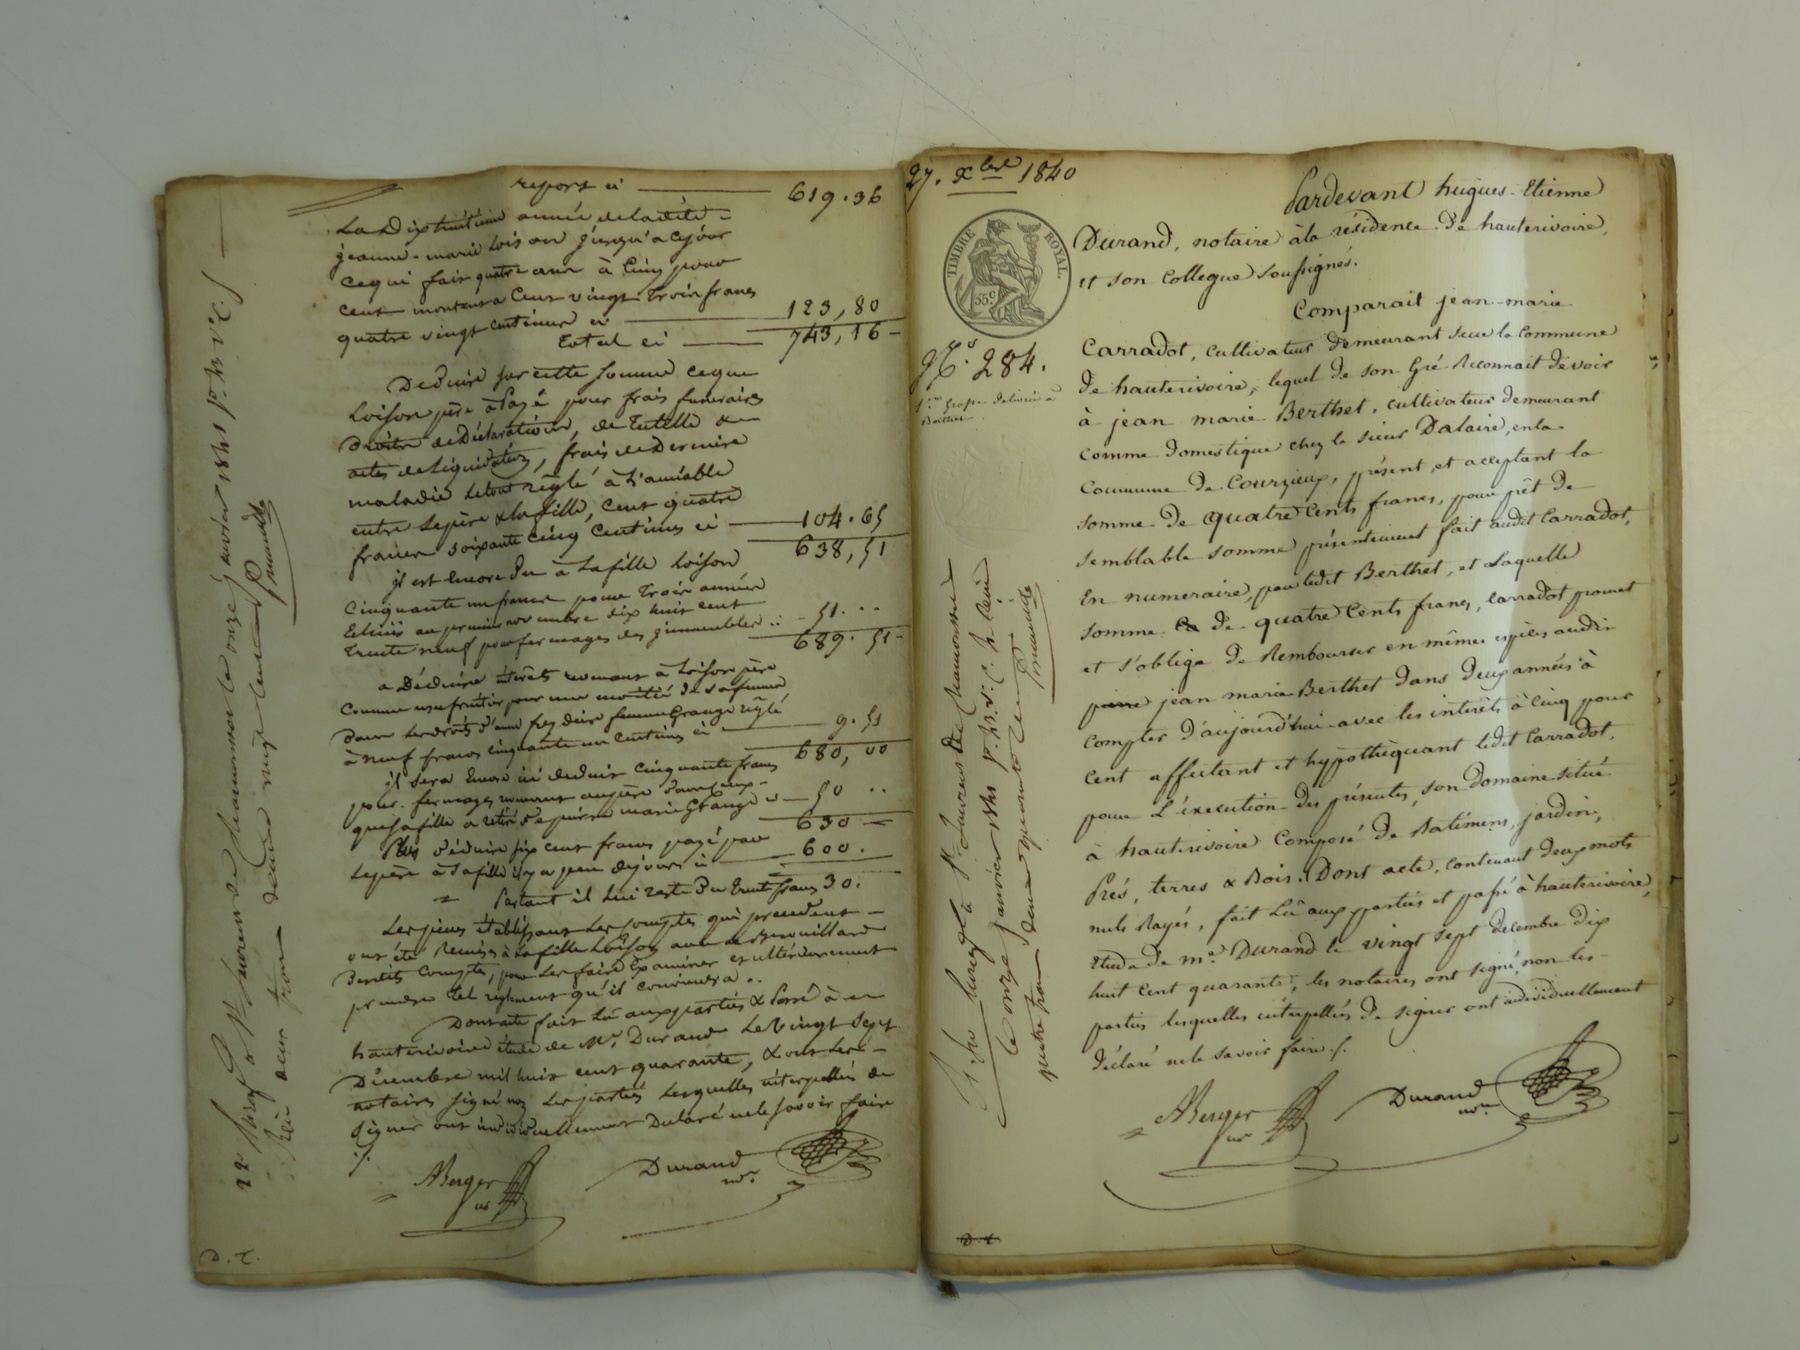 report ci 619.36
La dixhuitième année de la dite
jeanne-marie Loison jusqu'a ce jour
ce qui fait quatre ans à Cinq pour
cent montant a Cent vingt trois francs
quatre vingt centimes ci 123,80
Total ci 743,16
Deduire sur cette somme ce que
Loison père à Payé pour frais funeraires
Droits de Déclaration, de Tutelle
actes de Liquidation, frais de Dernière
maladie Le tout réglé à L'amiable
entre Le père & la fille, Cent quatre
francs soixante cinq Centimes ci 104.65
638,51
il est Encore Du à La fille Loison
Cinquante un francs pour Trois années
Echües au premier novembre dix huit cent
Trente neuf pour fermages des immeubles 51..
689.51
a Déduire intérêts revenant à Loison père
Comme usufruitier pour une moitié de sa femme
réglé
à neuf francs cinquante un Centimes ci 9.51
680,00
il sera Encore ici deduit cinquante francs
pour fermages
que sa fille a retiré marie Grange ci 50..
630
Plus déduire six cent francs payé par
Le père à Sa fille il y a peu de jours ci 600.
Partant il lui reste Du trente francs 30.
Les pieces établissant Les Comptes qui precedent
ont été Remises à La fille Loison avec Le Brouillard
Desdits Comptes, pour Les faire Examiner et ultérieurement
prendre Tel reglement qu'il conviendra..
Dont acte fait Lû aux parties & Passé à
hauterivoire étude de Me. Durand Le Vingt Sept
Décembre mil huit cent quarante, & ont Les
notaires signé non Les parties Lesquelles interpellées de
signer ont individuellement Declaré ne le savoir faire
./.
ABerger
nre
Durand
nore
D.C.
27. Xbre 1840
TIMBRE ROYAL.
35c
No. 284.
1re. Grosse delivrée a
Berthet
Pardevant hugues-Etienne
Durand, notaire à la résidence de hauterivoire,
et son collegue soussignés.
Comparait jean-marie
Carradot, cultivateur demeurant sur la Commune
de hauterivoire, lequel de son Gré Reconnait devoir
à jean marie Berthet, cultivateur demeurant
comme domestique chez le sieur Dalaire, en la
Commune de Courzieux, présent et acceptant la
somme de quatre Cents francs, pour prêt de
semblable somme présentement fait audit Carradot,
En numeraire, par ledit Berthet, et Laquelle
somme de quatre Cents francs, Carradot promet
et s'oblige de Rembourser en mêmes espèces audit
jean marie Berthet dans Deux années à
Compter d'aujourd'hui avec les intérêts à Cinq pour
Cent affectant et hypothéquant ledit Carradot,
pour L'éxécution des présentes, son domaine situé
à hauterivoire Composé de Batimens, jardin,
Prés, terres & Bois. Dont acte, contenant deux mots
nuls Rayés, fait Lû aux parties et passé à hauterivoire,
Etude de me. Durand le vingt sept decembre dix
huit Cent quarante, les notaires ont signé non les
parties lesquelles interpellées de signer ont individuellement
déclaré ne le savoir faire./.
ABerger
nre
Durand
nore